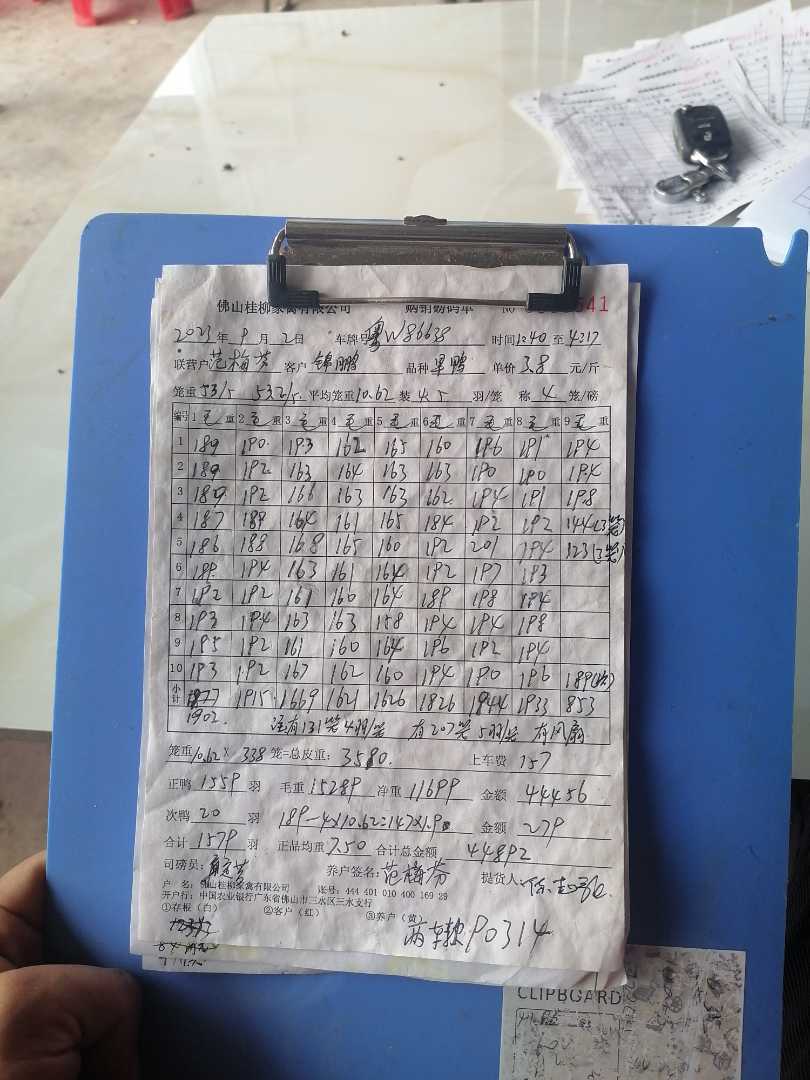 佛山桂柳家禽有限公司 购销磅码单 NO 41
2023年9月2日 车牌号粤W86638 时间1:40至4:17
联营户范梅芳 客户锦鹏 品种 单价3.8元/斤
笼重53/5 53.2/5 平均笼重10.62 装4.5羽/笼 称4笼/磅
编号 1毛重 2毛重 3毛重 4毛重 5毛重 6毛重 7毛重 8毛重 9毛重
1 189 190 193 162 165 160 196 191 194
2 189 192 163 164 163 163 190 190 194
3 189 192 166 163 163 162 194 191 198
4 187 189 164 161 165 184 192 192 144(3笼)
5 186 188 168 165 160 192 201 194 123(3笼)
6 189 194 163 161 164 192 197 193
7 192 192 161 160 164 189 198 194
8 193 194 163 163 158 194 194 198
9 195 192 161 160 164 196 192 194
10 193 192 167 162 160 194 190 196 189(次)
小计 1915 1669 1621 1626 1826 1944 1933 853
1902. 注有131笼4羽/笼 有207笼5羽/笼 有风扇
笼重10.62×338笼=总皮重:3590. 上车费157
正鸭1559羽 毛重15289 净重11699 金额44456
次鸭20羽 189-4×10.62=147×1.9 金额279
合计1579羽 正品均重7.50 合计总金额44892
司磅员: 养户签名:范梅芳 提货人:
户 名:佛山桂柳家禽有限公司 账号:444 401 010 400 169 29
开户行:中国农业银行广东省佛山市三水区三水支行
①存根(白) ②客户(红) ③养户(黄)
两车款90314
CLIPBOARD